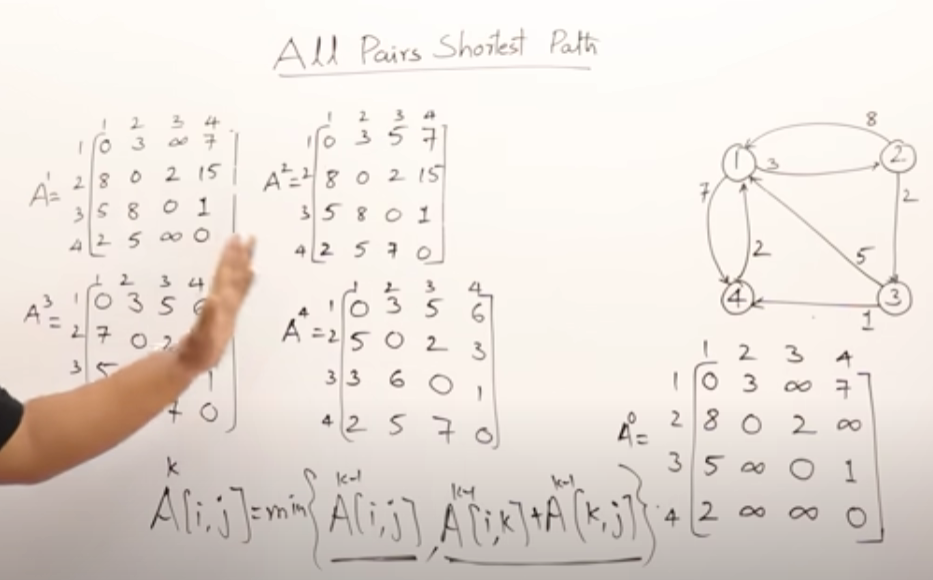 All Pairs Shortest Path
1 2 3 4
1 0 3 ∞ 7
A¹= 2 8 0 2 15
3 5 8 0 1
4 2 5 ∞ 0
1 2 3 4
1 0 3 5 7
A²= 2 8 0 2 15
3 5 8 0 1
4 2 5 7 0
1 2 3 4
A³= 1 0 3 5 6
2 7 0 2
3 5 1
7 0
1 2 3 4
1 0 3 5 6
A⁴= 2 5 0 2 3
3 3 6 0 1
4 2 5 7 0
8
1 3 2
7 2 2
5
4 1 3
1 2 3 4
1 0 3 ∞ 7
A⁰= 2 8 0 2 ∞
3 5 ∞ 0 1
4 2 ∞ ∞ 0
Aᵏ[i,j]=min{Aᵏ⁻¹[i,j], Aᵏ⁻¹[i,k]+Aᵏ⁻¹[k,j]}.